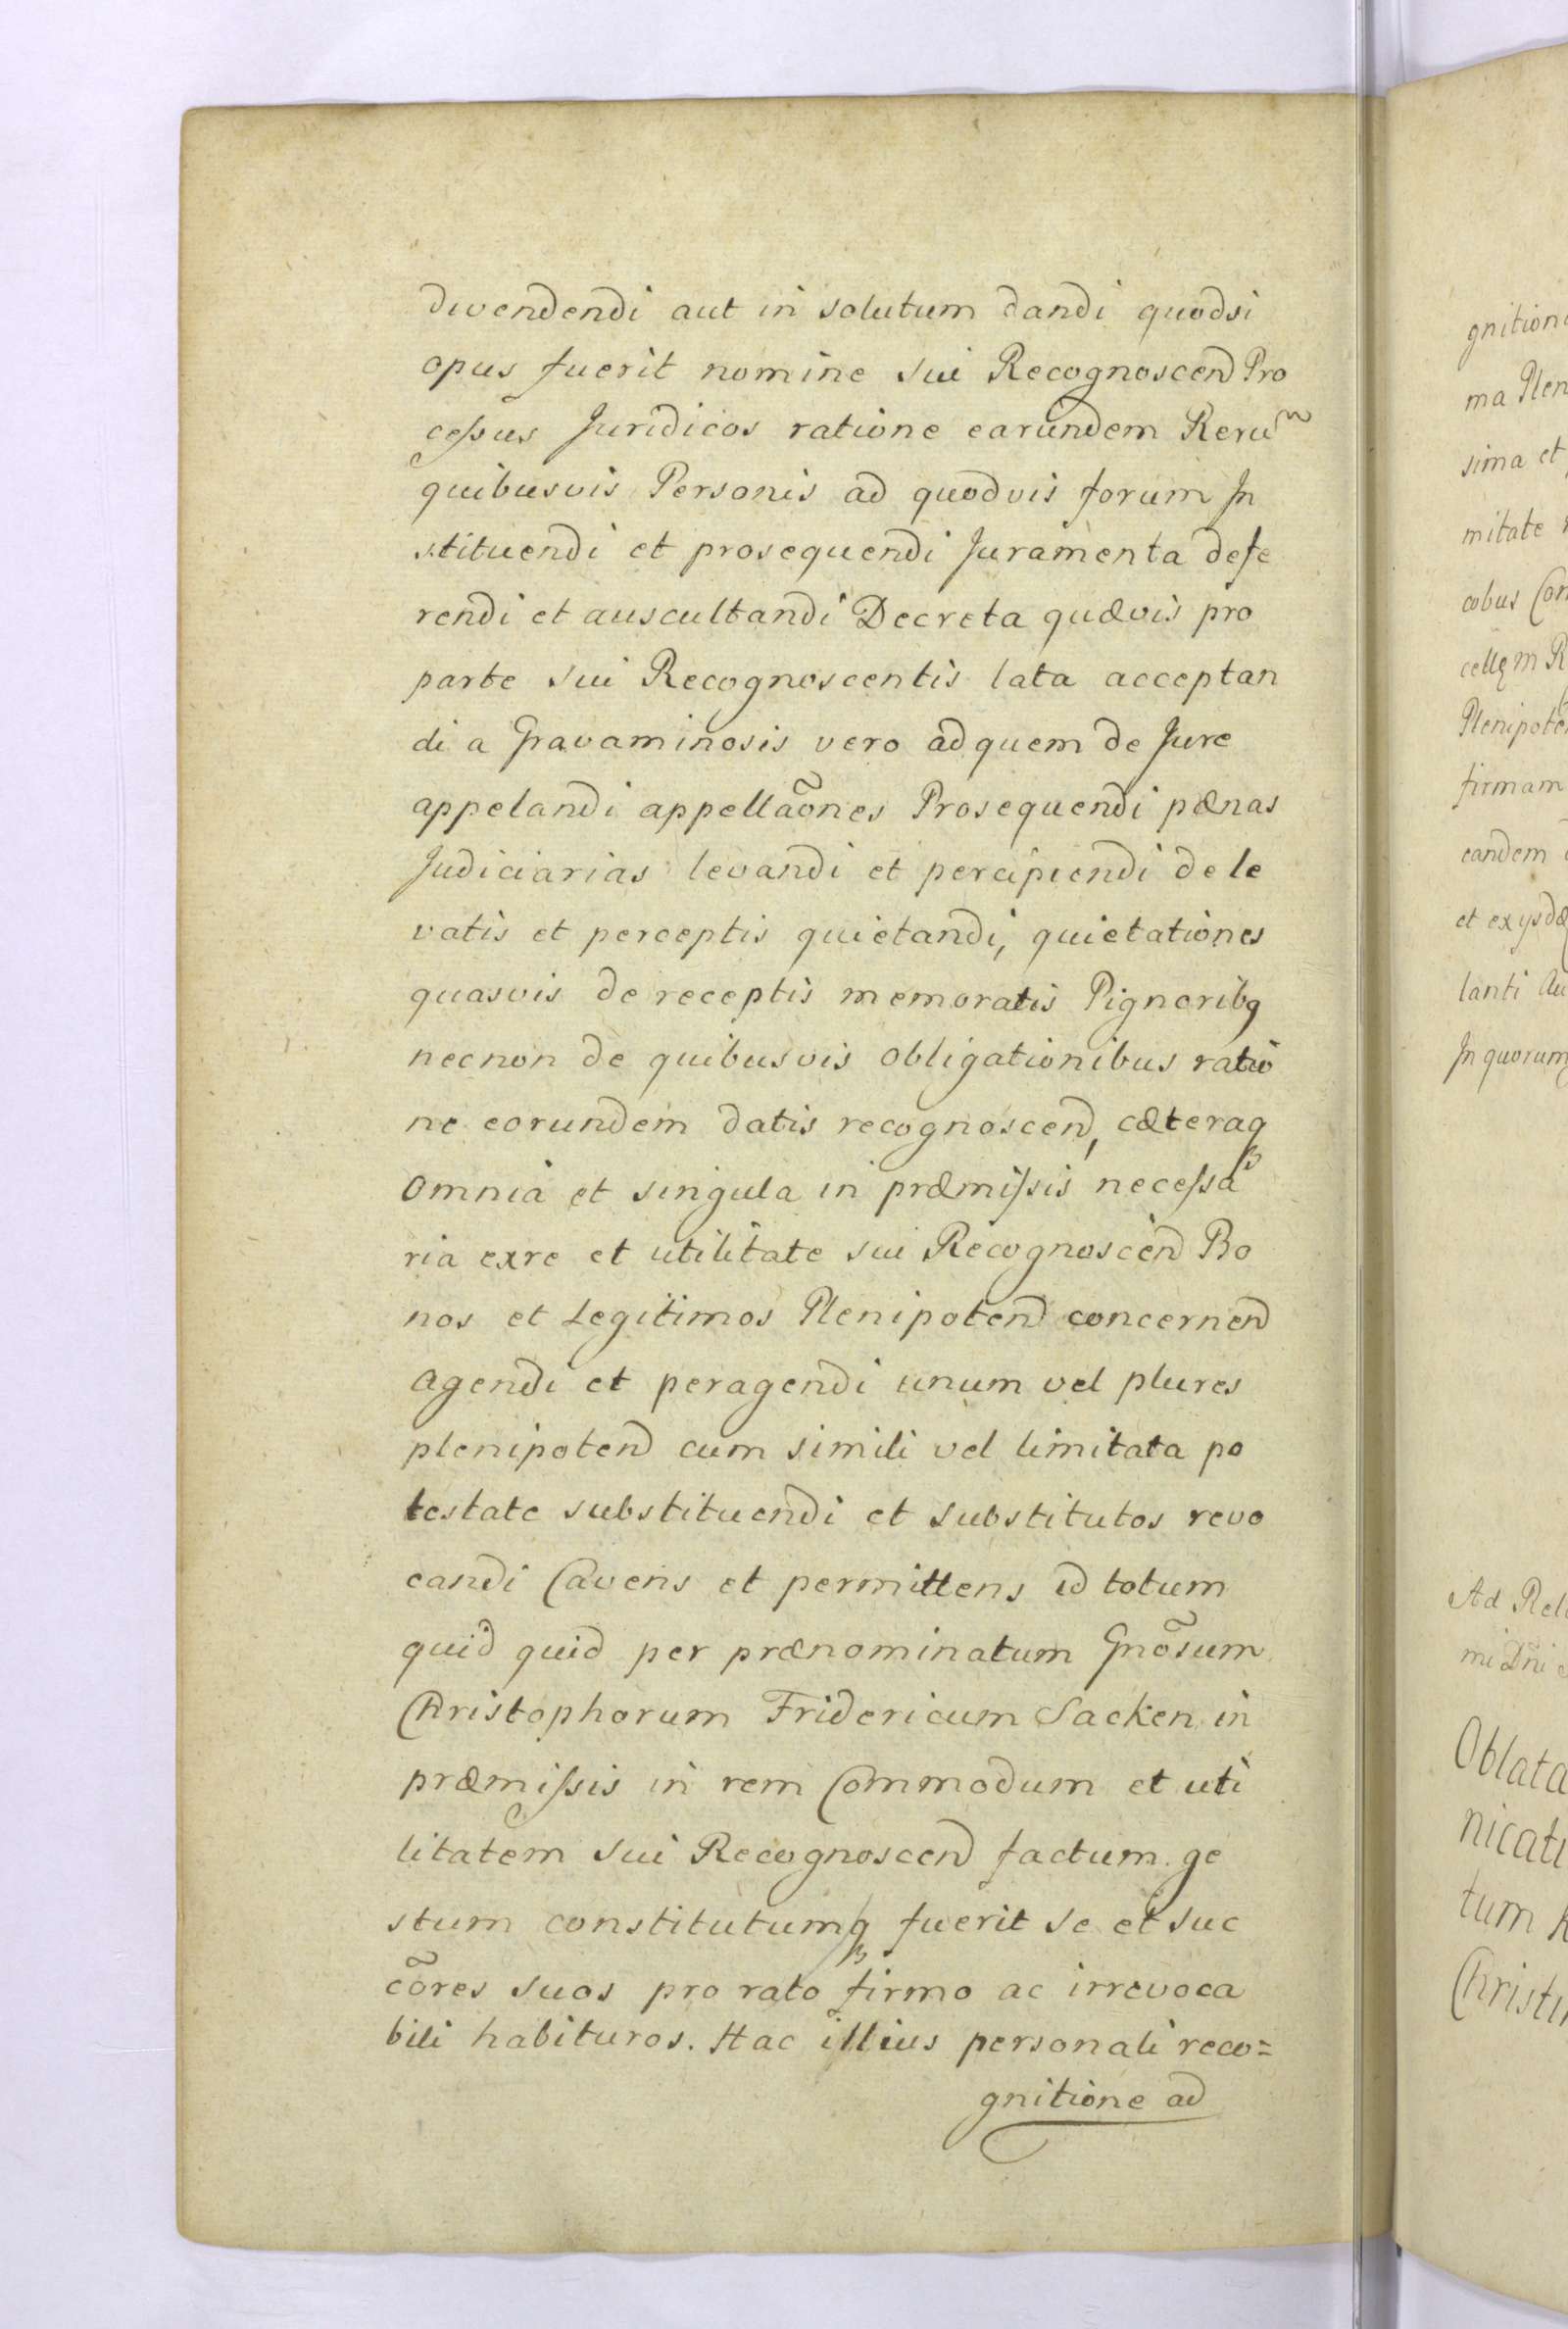 divendendi aut in solutum dandi quodsi
opus fuerit nomine sui Recognoscend Pro
cessus Juridicos ratione earundem Rerũ
quibusvis Personis ad quodvis forum In
stituendi et prosequendi Juramenta defe
rendi et auscultandi Decreta quævis pro
parte sui Recognoscentis lata acceptan
di a Gravaminosis vero ad quem de Jure
appelandi appellaõnes Prosequendi pænas
Judiciarias levandi et percipiendi de le
vatis et perceptis quietandi, quietationes
quasvis de receptis memoratis Pignoribq
necnon de quibusvis obligationibus ratio
ne eorundem datis recognoscend, cæteraq
omnia et singula in præmissis necessa
ria exre et utilitate sui Recognoscend Bo
nos et Legitimos Plenipotend concernend
agendi et peragendi unum vel plures
plenipotend cum simili vel limitata po
testate substituendi et substitutos revo
candi Cavens et permittens id totum
quid quid per prænominatum Gnõsum
Christophorum Fridericum Sacken in
præmissis in rem Commodum et uti
litatem sui Recognoscend factum ge
stum constitutumq fuerit se et suc
cõres suos pro rato firmo ac irrevoca
bili habituros. Hac illius personali reco=
gnitione ad
ma Plen
sima et
mitate
cobus Con
Plenipote
firmam
eandem
lanti Au
In quorum
Ad Rel
mi Dni
Oblata
nicati
tum
Christi